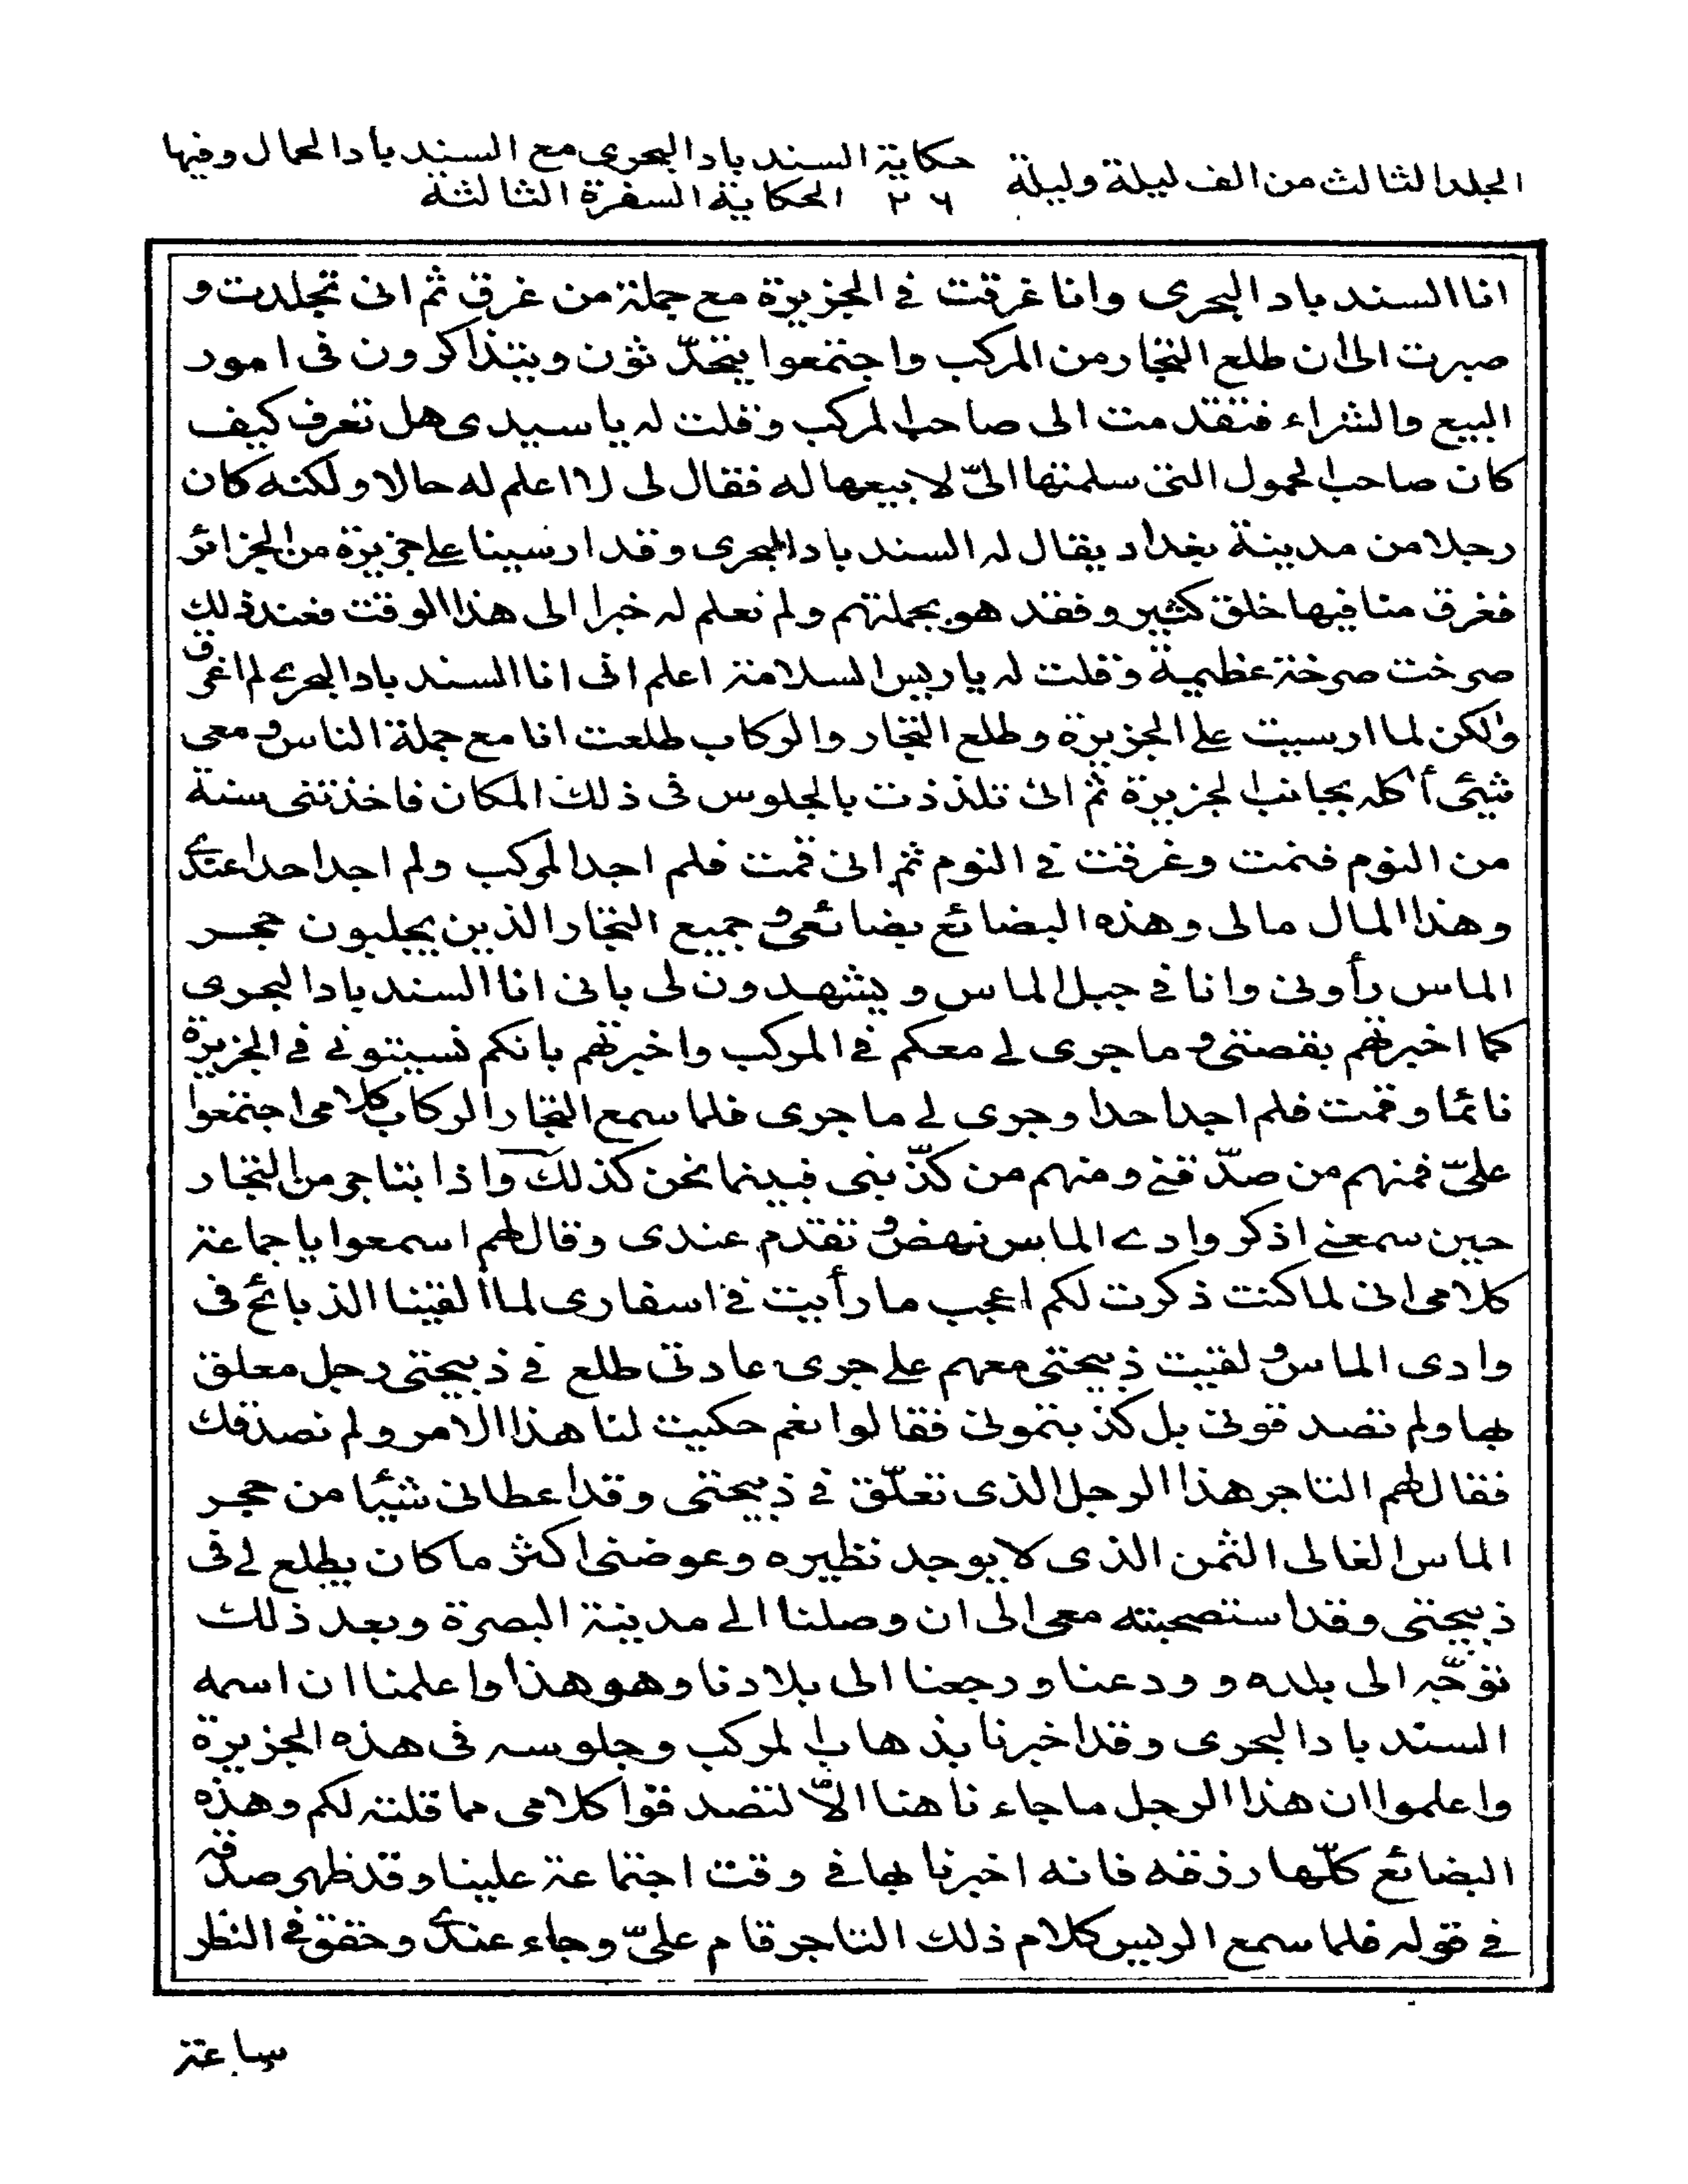 الجلد الثالث من الف ليلة وليلة
٢٦
حكاية السند باد البحرى مع السند باد الحمال وفيها
الحكاية السفرة الثالثة
انا السند باد البحرى وانا غرقت فى الجزيرة مع جملة من غرق ثم انى تجلدت و
صبرت الى ان طلع التجار من المركب واجتمعوا يتحدّثون ويتذاكرون فى امور
البيع والشراء فتقدمت الى صاحب المركب وقلت له يا سيدى هل تعرف كيف
كان صاحب الحمول التى سلمتها الىّ لابيعها له فقال لى لا اعلم له حالا ولكنه كان
رجلا من مدينة بغداد يقال له السند باد البحرى وقد ارسينا على جزيرة من الجزائر
فغرق منا فيها خلق كثير وفقد هو بجملتهم ولم نعلم له خبرا الى هذا الوقت فعند ذلك
صرخت صرخة عظيمة وقلت له يا ريس السلامة اعلم انى انا السند باد البحرى لم اغرق
ولكن لما ارسيت على الجزيرة وطلع التجار والركاب طلعت انا مع جملة الناس ومعى
شيئ أكله بجانب الجزيرة ثم انى تلذذت بالجلوس فى ذلك المكان فاخذتنى سنة
من النوم فنمت وغرقت فى النوم ثم انى قمت فلم اجد المركب ولم اجد احدا عندى
وهذا المال مالى وهذه البضائع بضائعى وجميع التجار الذين يجلبون حجر
الماس رأونى وانا فى جبل الماس ويشهدون لى بانى انا السند باد البحرى
كما اخبرتهم بقصتى وما جرى لى معكم فى المركب واخبرتهم بانكم نسيتونى فى الجزيرة
نائما وقمت فلم اجد احدا وجرى لى ما جرى فلما سمع التجار والركاب كلامى اجتمعوا
علىّ فمنهم من صدّقنى ومنهم من كذّبنى فبينما نحن كذلك واذا بتاجر من التجار
حين سمعنى اذكر وادى الماس نهض وتقدم عندى وقال لهم اسمعوا يا جماعة
كلامى انى لما كنت ذكرت لكم اعجب ما رأيت فى اسفارى لما القينا الذبائح فى
وادى الماس ولقيت ذبيحتى معهم على جرى عادتى طلع فى ذبيحتى رجل معلق
بها ولم تصدقونى بل كذبتمونى فقالوا نعم حكيت لنا هذا الامر ولم نصدقك
فقال لهم التاجر هذا الرجل الذى تعلّق فى ذبيحتى وقد اعطانى شيئا من حجر
الماس الغالى الثمن الذى لا يوجد نظيره وعوضنى اكثر ما كان يطلع لى فى
ذبيحتى وقد استصحبته معى الى ان وصلنا الى مدينة البصرة وبعد ذلك
توجّه الى بلده وودعنا ورجعنا الى بلادنا وهو هذا واعلمنا ان اسمه
السند باد البحرى وقد اخبرنا بذهاب المركب وجلوسه فى هذه الجزيرة
واعلموا ان هذا الرجل ما جاءنا هنا الّا لتصدقوا كلامى مما قلته لكم وهذه
البضائع كلّها رزقه فانه اخبرنا بها فى وقت اجتماعة علينا وقد ظهر صدقه
فى قوله فلما سمع الريس كلام ذلك التاجر قام علىّ وجاء عندى وحقق فى النظر
ساعة